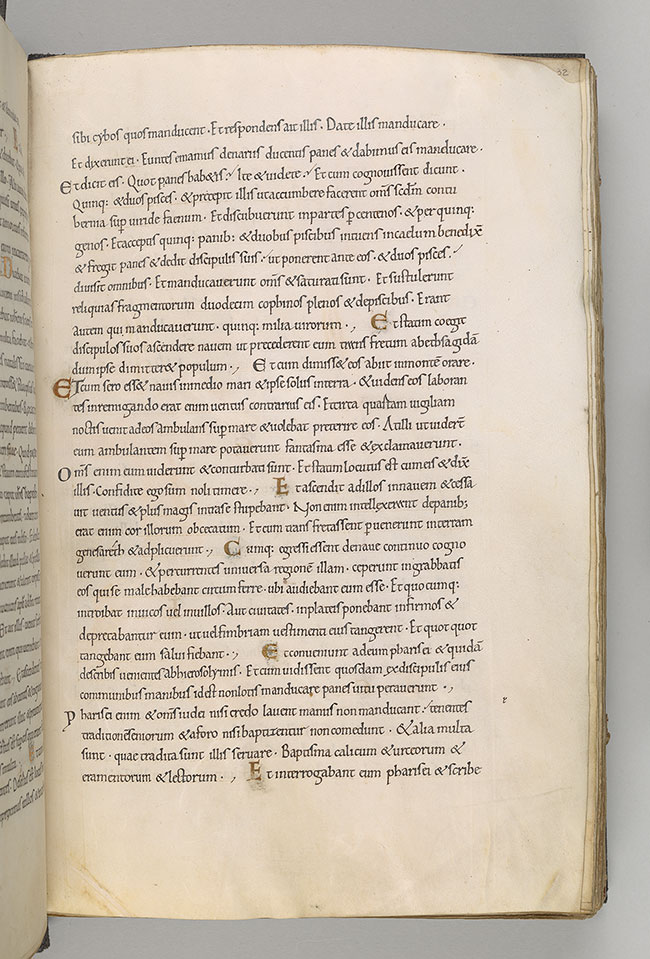 32
sibi cybos quos manducent · Et respondens ait illis · Date illis manducare ·
Et dixerunt ei · Euntes emamus denariis ducentis panes & dabimus eis manducare ·
Et dicit eis · Quot panes hab&is? Ite & videte · Et cum cognovissent dicunt ·
Quinq: & duos pisces · & precepit illis ut accumbere facerent om̄s scd̄m contu
bernia sup viride faenum · Et discubuerunt in partes p centenos · & per quinq:
genos · Et acceptis quinq: panib: & duobus piscibus intuens in caelum benedix̄
& fregit panes & dedit discipulis suis · ut ponerent ante eos · & duos pisces ·
divisit omnibus · Et manducaverunt om̄s & saturati sunt · Et sustulerunt
reliquias fragmentorum duodecim cophinos plenos & de piscibus · Erant
autem qui manducaverunt · quinq: milia virorum · Et statim coegit
discipulos suos ascendere navem ut precederent eum trans fretum ad bethsaidā
dum ipse dimitter& populum · Et cum dimiss& eos abiit in montē orare ·
Et cum sero ess& navis in medio mari & ipse solus in terra · & videns eos laboran
tes in remigando erat enim ventus contrarius eis · Et circa quartam vigiliam
noctis venit ad eos ambulans sup mare & volebat preterire eos · At illi ut vidert̄
eum ambulantem sup mare putaverunt fantasma esse & exclamaverunt ·
Om̄s enim eum viderunt & conturbati sunt · Et statim locutus est cum eis & dix̄
illis · Confidite ego sum nolite timere · Et ascendit ad illos in navem & cessa
vit ventus & plus magis intra se stupebant · Non enim intellexerunt de panib;
erat enim cor illorum obcecatum · Et cum transfretassent pvenerunt in terram
genesareth & adplicuerunt · Cumq: egressi essent de nave continuo cogno
verunt eum · & percurrentes universa regionē illam · ceperunt in grabbatis
eos qui se male habebant circumferre · ubi audiebant eum esse · Et quocumq:
introibat in vicos vel in villos · Aut civitates · in plateis ponebant infirmos &
deprecabantur eum · ut vel fimbriam vestimenti eius tangerent · Et quot quot
tangebant eum salvi fiebant · Et conveniunt ad eum pharisei & quidā
de scribis venientes ab hierosolymis · Et cum vidissent quosdam ex discipulis eius
communibus manibus id est non lotis manducare panes vituperaverunt ·
Pharisei enim & om̄s iudei nisi crebro lavent manus non manducant · tenentes
traditionē seniorum & a foro nisi baptizentur non comedunt · & alia multa
sunt · quae tradita sunt illis servare · Baptisma calicum & urceorum &
eramentorum & lectorum · Et interrogabant eum pharisei & scribe